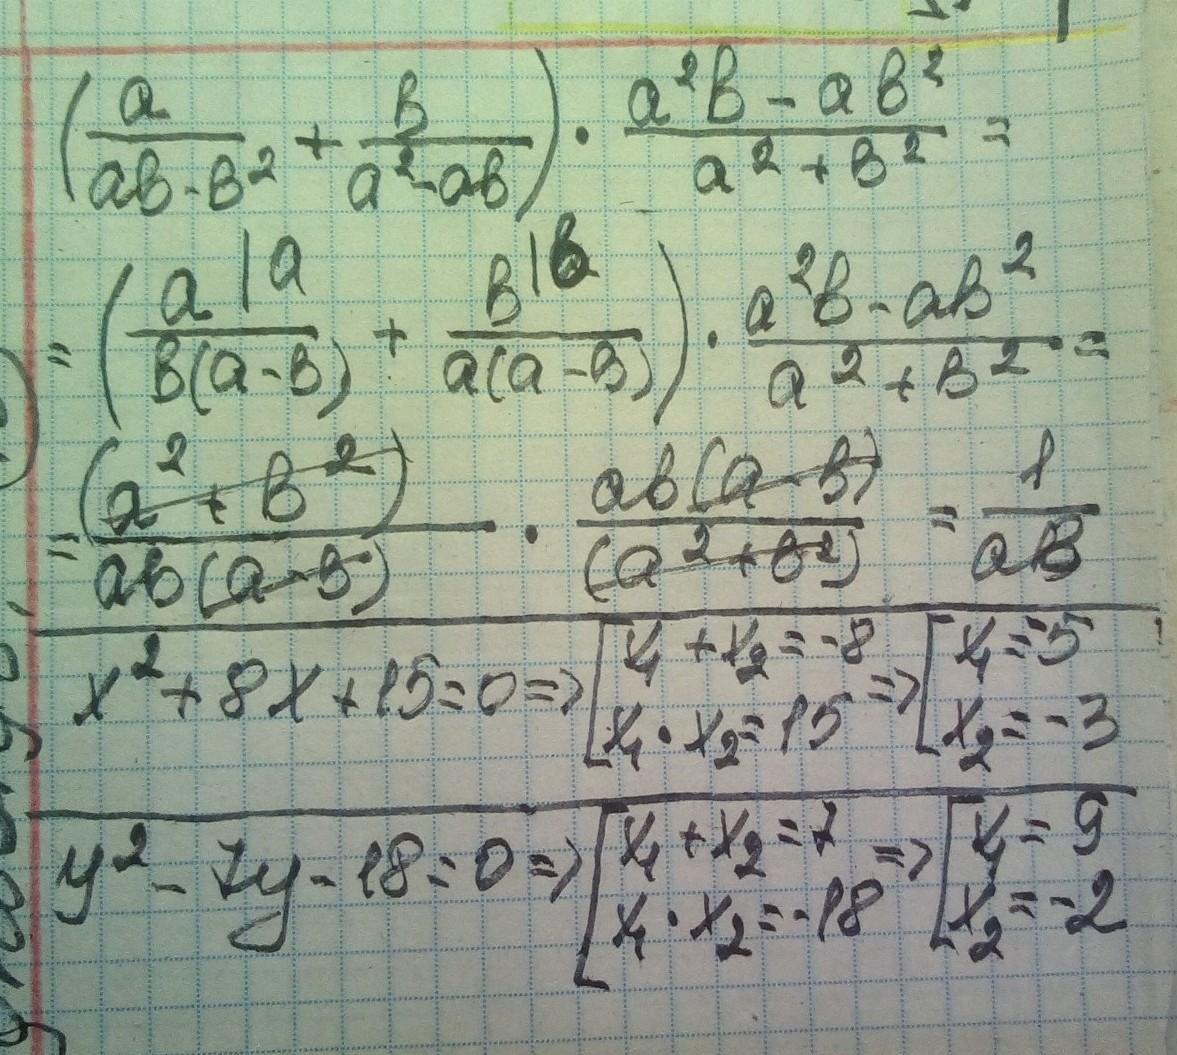 (a/(ab-b²) + b/(a²-ab)) · (a²b - ab²)/(a² + b²) =
= (a|a/(b(a-b)) + b|b/(a(a-b))) · (a²b - ab²)/(a² + b²) =
= (a² + b²)/(ab(a-b)) · ab(a-b)/(a²+b²) = 1/ab
x² + 8x + 15 = 0 => [x₁ + x₂ = -8 => [x₁ = 5
x₁ · x₂ = 15 x₂ = -3
y² - 7y - 18 = 0 => [x₁ + x₂ = 7 => [x₁ = 9
x₁ · x₂ = -18 x₂ = -2